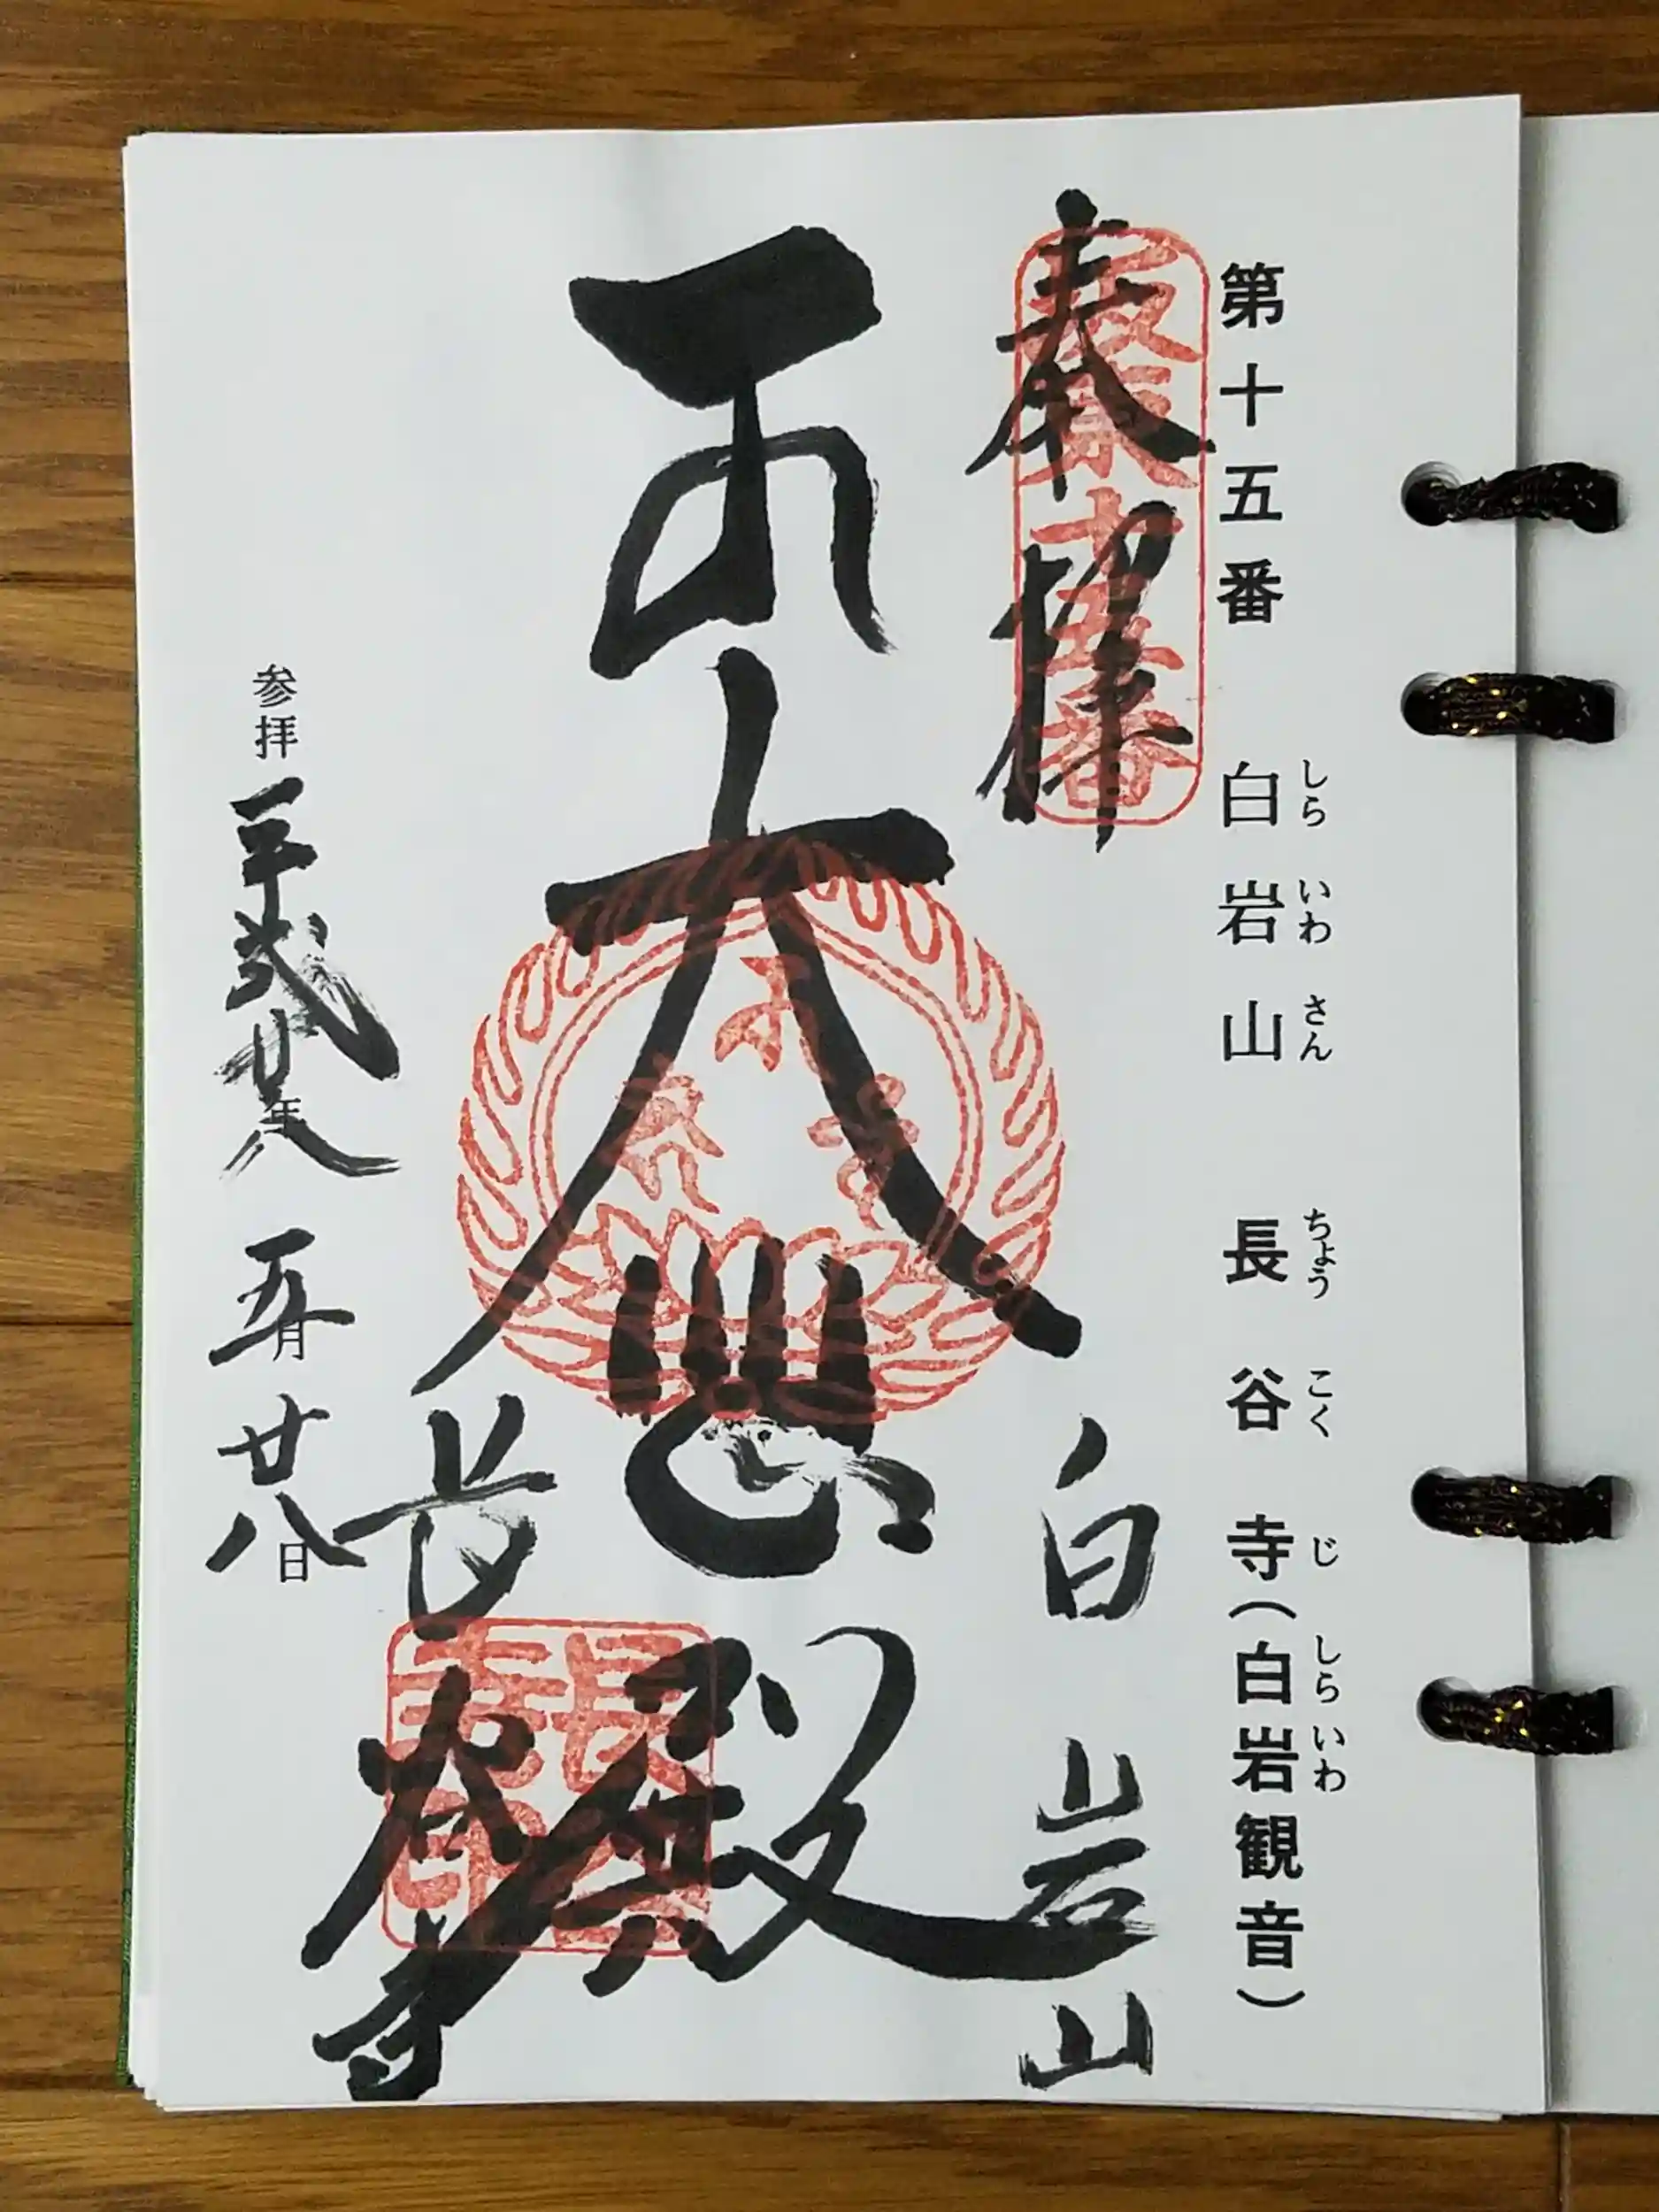 第十五番 白岩山 長谷寺(白岩観音)
しらいわさん ちょうこくじ しらいわ
奉拝
坂東十五番
白岩山
大悲殿
長谷寺
長谷寺印
参拝 平成廿八年 五月 廿八日